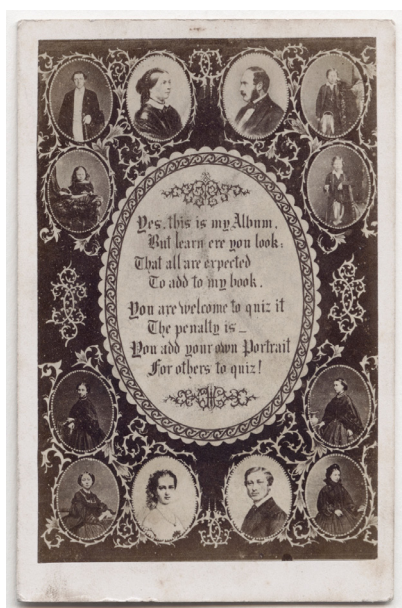 Yes, this is my Album,
But learn ere you look:
That all are expected
To add to my book.
You are welcome to quiz it
The penalty is _
You add your own Portrait
For others to quiz!